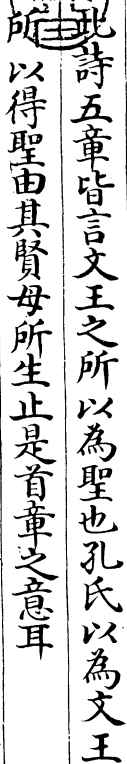 此詩五章皆言文王之所以為聖也孔氏以為文王
所以得聖由其賢母所生止是首章之意耳